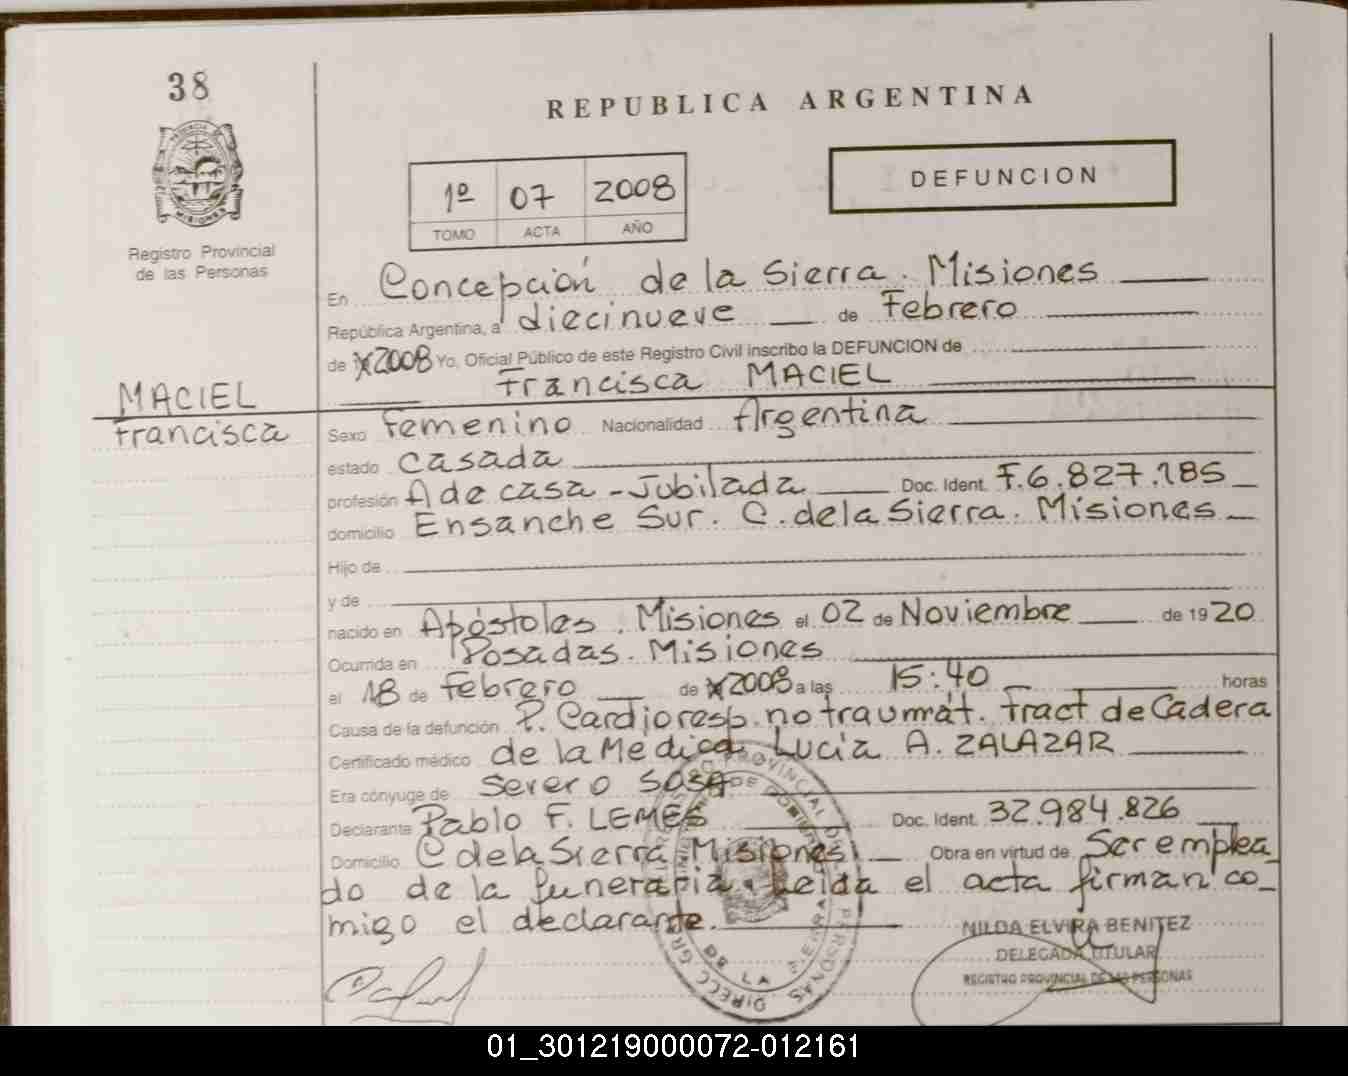 38
REPUBLICA ARGENTINA
1º 07 2008
TOMO ACTA AÑO
DEFUNCION
Registro Provincial
de las Personas
En Concepción de la Sierra. Misiones
República Argentina, a diecinueve de Febrero
de 2008 Yo, Oficial Público de este Registro Civil inscribo la DEFUNCION de
Francisca MACIEL
MACIEL
Francisca
Sexo Femenino Nacionalidad Argentina
estado Casada
profesión A de casa - Jubilada Doc. Ident. F.6.827.185
domicilio Ensanche Sur. C. de la Sierra. Misiones
Hijo de
y de
nacido en Apóstoles. Misiones el 02 de Noviembre de 1920
Ocurrida en Posadas. Misiones
el 18 de Febrero de 2008 a las 15:40 horas
Causa de la defunción P. Cardioresp. no traumát. Fract de Cadera
Certificado médico de la Medica Lucía A. ZALAZAR
Era cónyuge de Severo SOSA
Declarante Pablo F. LEMES Doc. Ident. 32.984.826
Domicilio C de la Sierra Misiones Obra en virtud de Ser emplea
do de la funeraria. Leida el acta firman co-
migo el declarante.
NILDA ELVIRA BENITEZ
DELEGADA TITULAR
REGISTRO PROVINCIAL DE LAS PERSONAS
01_301219000072-012161